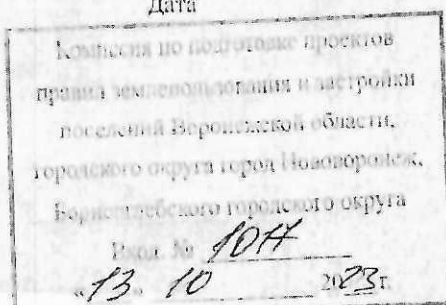 Дата
Комиссия по подготовке проектов
правил землепользования и застройки
поселений Воронежской области,
городского округа город Нововоронеж,
Борисоглебского городского округа
Вход. №
«13» 10 2023г.